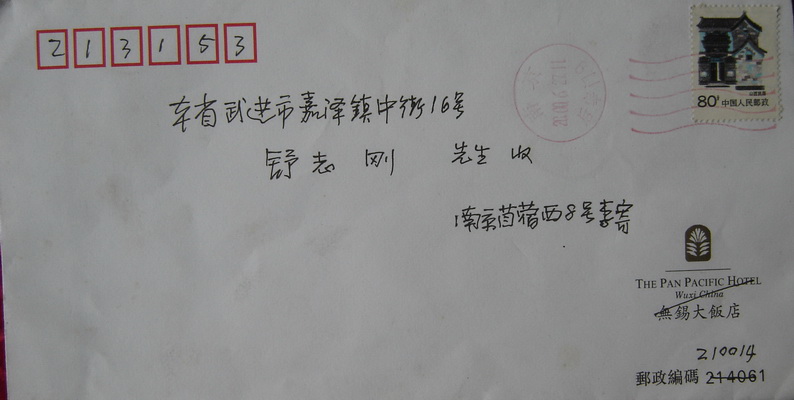 213153
80分 中国人民邮政
本省武进市嘉泽镇中街16号
舒志刚 先生 收
南京苜蓿西8号李寄
THE PAN PACIFIC HOTEL
Wuxi China
無錫大飯店
210014
郵政編碼 214061